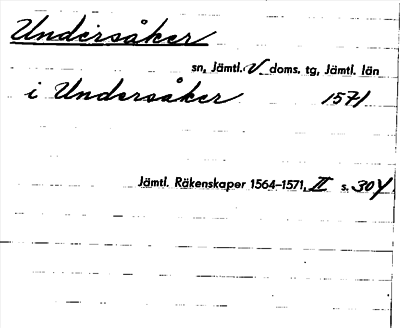 Undersåker
sn, Jämtl. V doms. tg, Jämtl. län
i Undersåker 1571
Jämtl. Räkenskaper 1564–1571, II s. 304